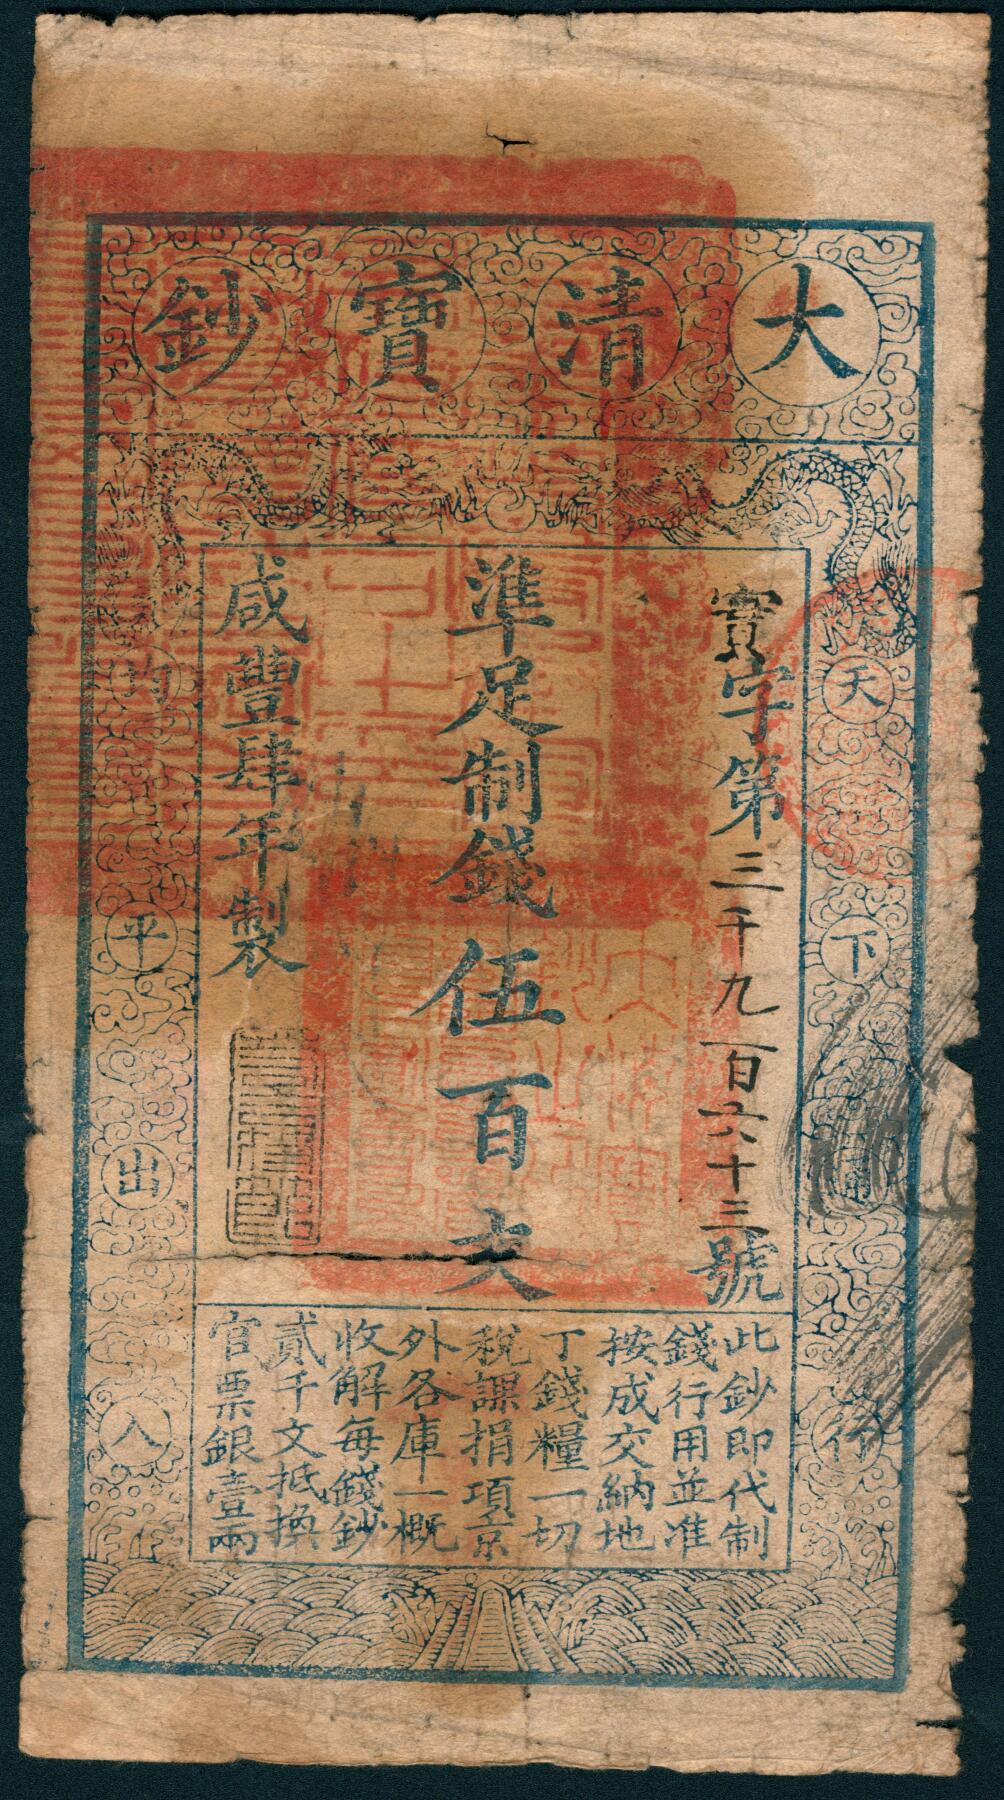 大清寶鈔
天下通行
均平出入
寳字第三千九百六十三號
準足制錢伍百文
咸豐肆年製
此鈔即代制
錢行用並准
按成交納地
丁錢糧一切
稅課捐項京
外各庫一概
收解每錢鈔
貳千文抵換
官票銀壹兩